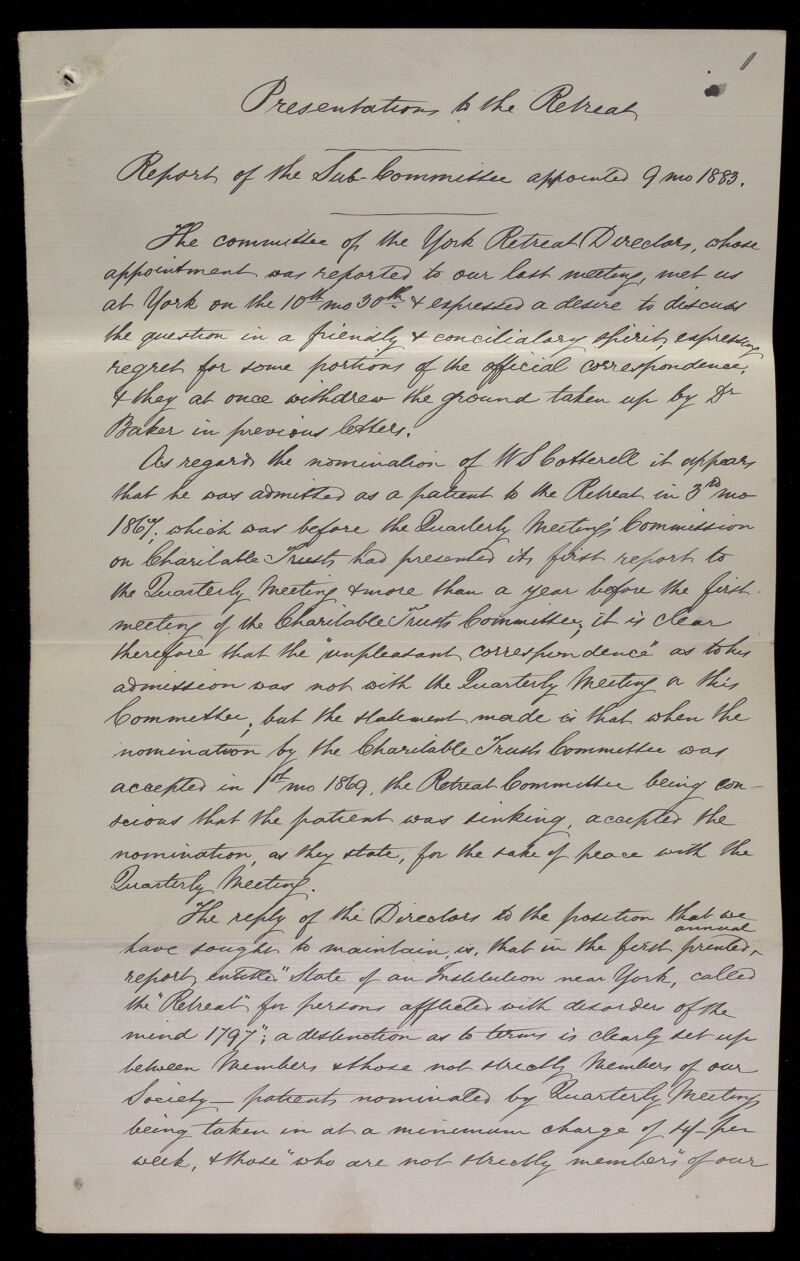 1
Presentations to the Retreat
Report of the Sub-Committee appointed 9 mo 1883.
The committee of the York Retreat Directors, whose
appointment was reported to our last meeting, met us
at York on the 10th mo 30th & expressed a desire to discuss
the question in a friendly & conciliatory spirit, expressing
regret for some portions of the official correspondence,
& they at once withdrew the ground taken up by Dr
Baker in previous letters.
As regards the nomination of W S Cotterell it appears
that he was admitted as a patient to the Retreat in 3rd mo
1867, which was before the Quarterly Meeting's Commission
on Charitable Trusts had presented its first report to
the Quarterly Meeting & more than a year before the first
meeting of the Charitable Trusts Committee; it is clear
therefore that the "unpleasant correspondence" as to his
admission was not with the Quarterly Meeting or this
Committee; but the statement made is that when the
nomination by the Charitable Trusts Committee was
accepted in 1st mo 1869, the Retreat Committee being con-
scious that the patient was sinking, accepted the
nomination, as they state, for the sake of peace with the
Quarterly Meeting.
The reply of the Directors to the position that we
have sought to maintain, is, that in the first printed annual
report, entitled "State of an Institution near York, called
the "Retreat" for persons afflicted with disorders of the
mind 1797"; a distinction as to terms is clearly set up
between Members & those not strictly Members of our
Society — patients nominated by Quarterly Meetings
being taken in at a minimum charge of per
week, & those "who are not strictly members" of our